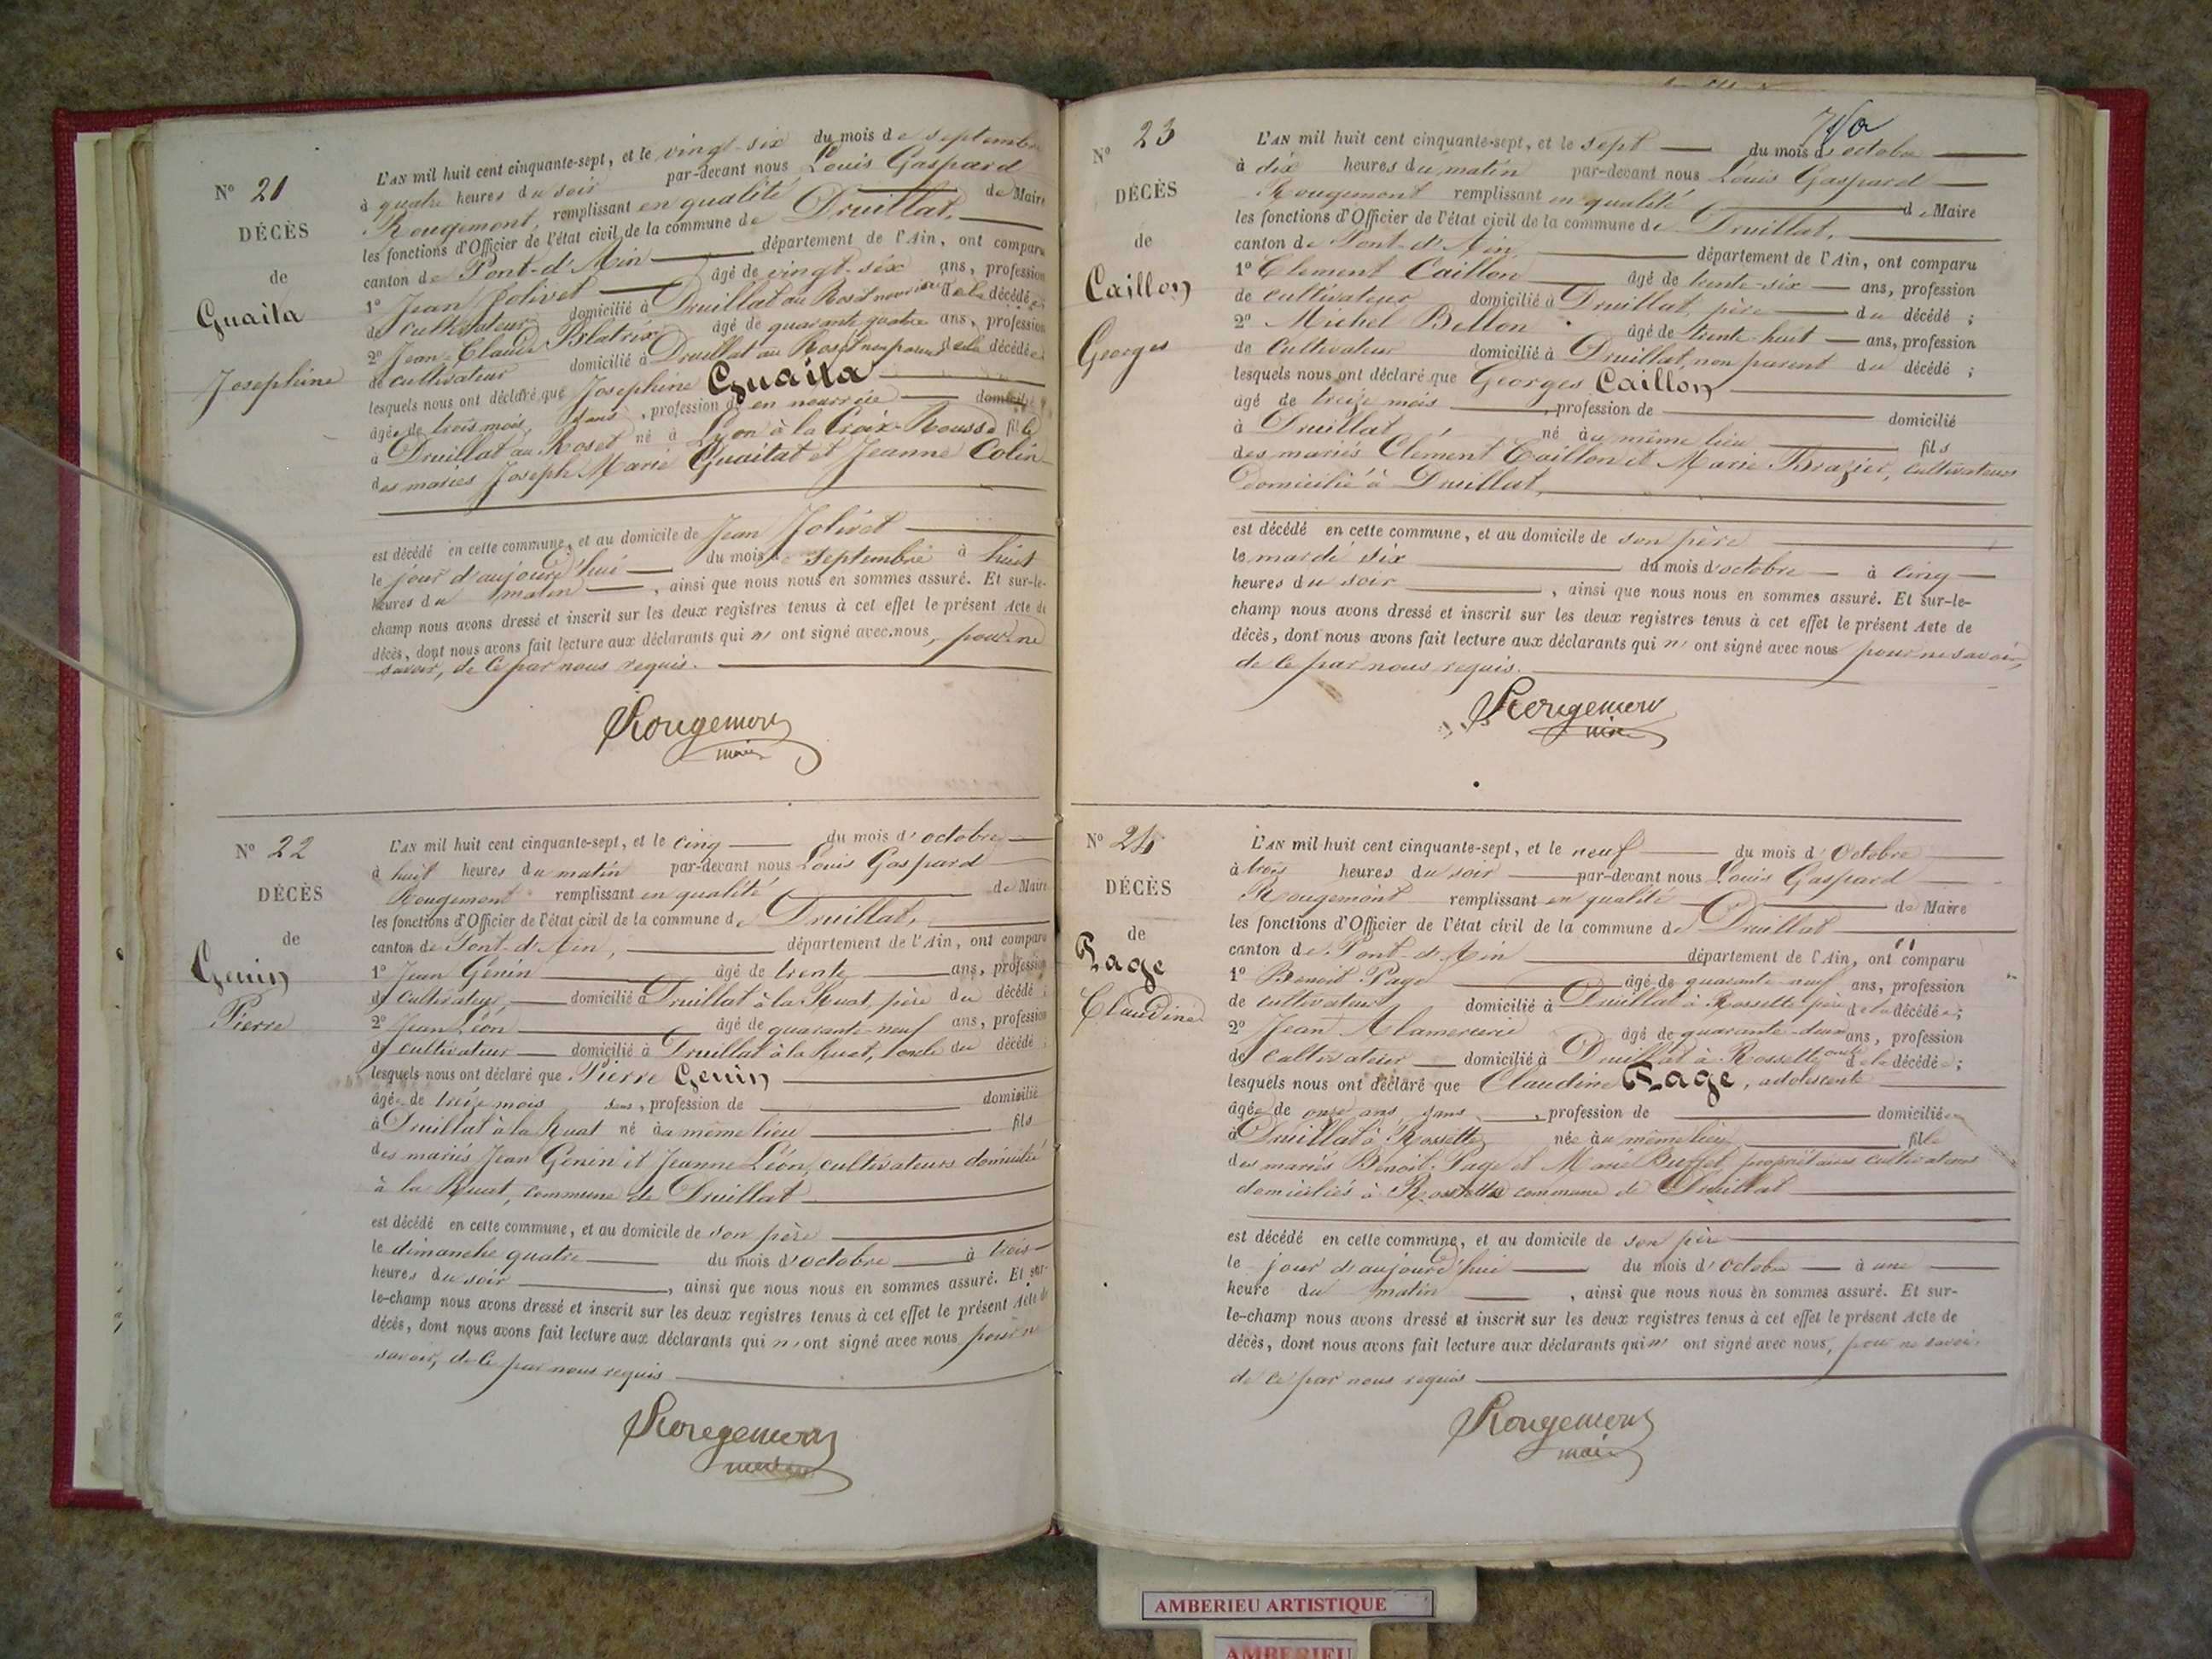 N° 21
DÉCÈS
de
Guaita
Josephine
L'AN mil huit cent cinquante-sept, et le vingt-six du mois de septembre
à quatre heures du soir par-devant nous Louis Gaspard
Rougemont, remplissant en qualité de Maire
les fonctions d'Officier de l'état civil de la commune de Druillat,
canton de Pont-d'Ain département de l'Ain, ont comparu
1° Jean Jolivet âgé de vingt-six ans, profession
de cultivateur domicilié à Druillat au Roset de la décédée
2° Jean-Claude Blatrix âgé de quarante quatre ans, profession
de cultivateur domicilié à Druillat au Roset non parent de la décédée
lesquels nous ont déclaré que Josephine Guaita
âgée de trois mois, sans, profession de en nourrice domicilié
à Druillat au Roset né à Lyon à la Croix-Rousse fille
des mariés Joseph Marie Guaitat et Jeanne Colin
est décédé en cette commune, et au domicile de Jean Jolivet
le jour d'aujourd'hui du mois de septembre à huit
heures du matin, ainsi que nous nous en sommes assuré. Et sur-le-
champ nous avons dressé et inscrit sur les deux registres tenus à cet effet le présent Acte de
décès, dont nous avons fait lecture aux déclarants qui n' ont signé avec nous, pour ne
savoir, de ce par nous requis.
Rougemont
maire
N° 22
DÉCÈS
de
Genin
Pierre
L'AN mil huit cent cinquante-sept, et le cinq du mois d'octobre
à huit heures du matin par-devant nous Louis Gaspard
Rougemont remplissant en qualité de Maire
les fonctions d'Officier de l'état civil de la commune de Druillat,
canton de Pont-d'Ain, département de l'Ain, ont comparu
1° Jean Génin âgé de trente ans, profession
de cultivateur, domicilié à Druillat à la Ruat, père du décédé;
2° Jean Léon âgé de quarante-neuf ans, profession
de cultivateur domicilié à Druillat à la Ruat, oncle du décédé;
lesquels nous ont déclaré que Pierre Genin
âgé de treize mois sans, profession de domicilié
à Druillat à la Ruat né au même lieu fils
des mariés Jean Génin et Jeanne Léon, cultivateurs domicilié
à la Ruat, commune de Druillat
est décédé en cette commune, et au domicile de son père
le dimanche quatre du mois d'octobre à trois
heures du soir, ainsi que nous nous en sommes assuré. Et sur-
le-champ nous avons dressé et inscrit sur les deux registres tenus à cet effet le présent Acte de
décès, dont nous avons fait lecture aux déclarants qui n'ont signé avec nous pour ne
savoir, de ce par nous requis
Rougemont
maire
N° 23
DÉCÈS
de
Caillon
Georges
L'AN mil huit cent cinquante-sept, et le sept du mois d'octobre
à dix heures du matin par-devant nous Louis Gaspard
Rougemont remplissant en qualité de Maire
les fonctions d'Officier de l'état civil de la commune de Druillat,
canton de Pont-d'Ain département de l'Ain, ont comparu
1° Clement Caillon âgé de trente-six ans, profession
de cultivateur domicilié à Druillat, père du décédé;
2° Michel Bellon âgé de trente-huit ans, profession
de cultivateur domicilié à Druillat, non parent du décédé;
lesquels nous ont déclaré que Georges Caillon
âgé de treize mois, profession de domicilié
à Druillat, né au même lieu fils
des mariés Clément Caillon et Marie Brazier, cultivateurs
domicilié à Druillat,
est décédé en cette commune, et au domicile de son père
le mardi six du mois d'octobre à cinq
heures du soir, ainsi que nous nous en sommes assuré. Et sur-le-
champ nous avons dressé et inscrit sur les deux registres tenus à cet effet le présent Acte de
décès, dont nous avons fait lecture aux déclarants qui n' ont signé avec nous pour ne savoir,
de ce par nous requis.
Rougemont
maire
N° 24
DÉCÈS
de
Page
Claudine
L'AN mil huit cent cinquante-sept, et le neuf du mois d'Octobre
à trois heures du soir par-devant nous Louis Gaspard
Rougemont remplissant en qualité de Maire
les fonctions d'Officier de l'état civil de la commune de Druillat
canton de Pont-d'Ain département de l'Ain, ont comparu
1° Benoit Page âgé de quarante-neuf ans, profession
de cultivateur domicilié à Druillat à Rossette père de la décédée;
2° Jean Alamercerie âgé de quarante-deux ans, profession
de cultivateur domicilié à Druillat à Rossette oncle de la décédée;
lesquels nous ont déclaré que Claudine Page, adolescente
âgée de onze ans, sans, profession de domiciliée
à Druillat à Rossette née au même lieu fille
des mariés Benoit Page et Marie Buffet, propriétaires cultivateurs
domiciliés à Rossette commune de Druillat
est décédé en cette commune, et au domicile de son père
le jour d'aujourd'hui du mois d'octobre à une
heure du matin, ainsi que nous nous en sommes assuré. Et sur-
le-champ nous avons dressé et inscrit sur les deux registres tenus à cet effet le présent Acte de
décès, dont nous avons fait lecture aux déclarants qui n' ont signé avec nous, pour ne savoir,
de ce par nous requis
Rougemont
maire
AMBERIEU ARTISTIQUE
AMBERIEU